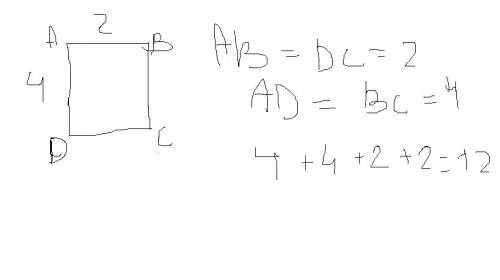 2
A B
4
D C
AB = DC = 2
AD = BC = 4
4 + 4 + 2 + 2 = 12